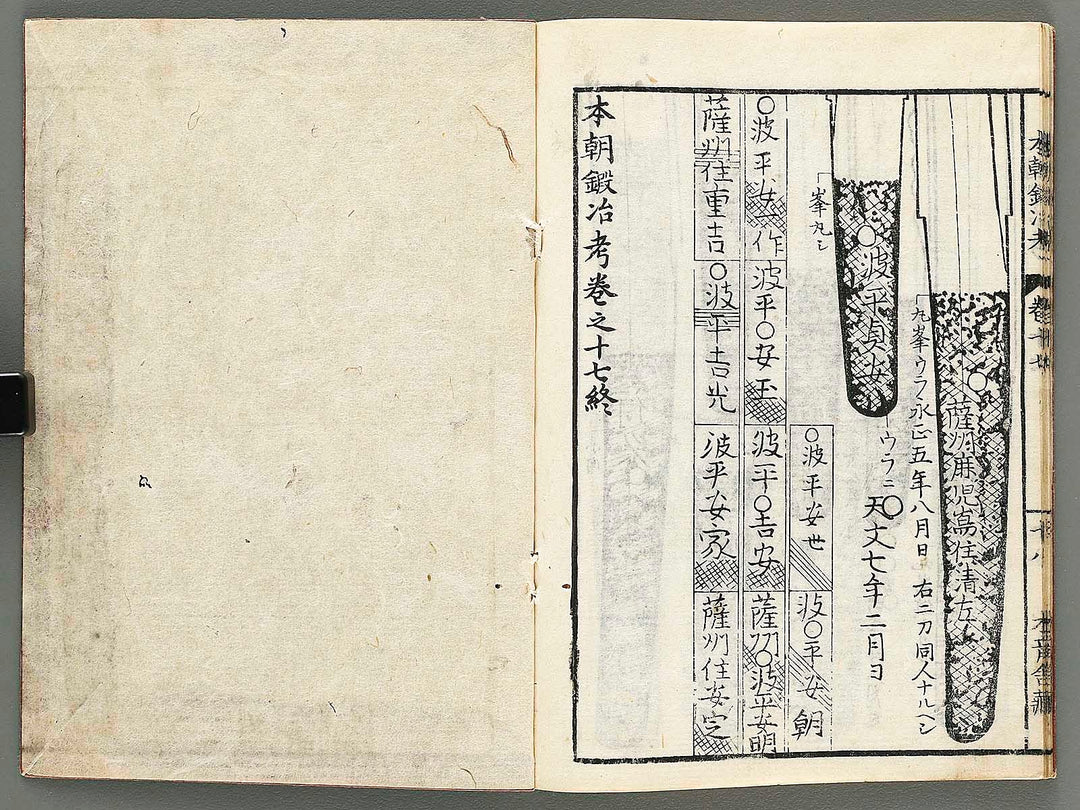 本朝鍛冶考
卷十七
十八
薩州麻児嶌住清左
「九峯ウラ永正五年八月日 右二刀同人ナルヘシ
○波平貞安
ウラニ天文七年二月日
「峯丸シ
○波平安世
波○平安朝
○波平安作
波平○安玉
波平○吉安
薩州○波平安明
薩州住重吉
○波平吉光
波平安家
薩州住安定
本朝鍛冶考卷之十七終